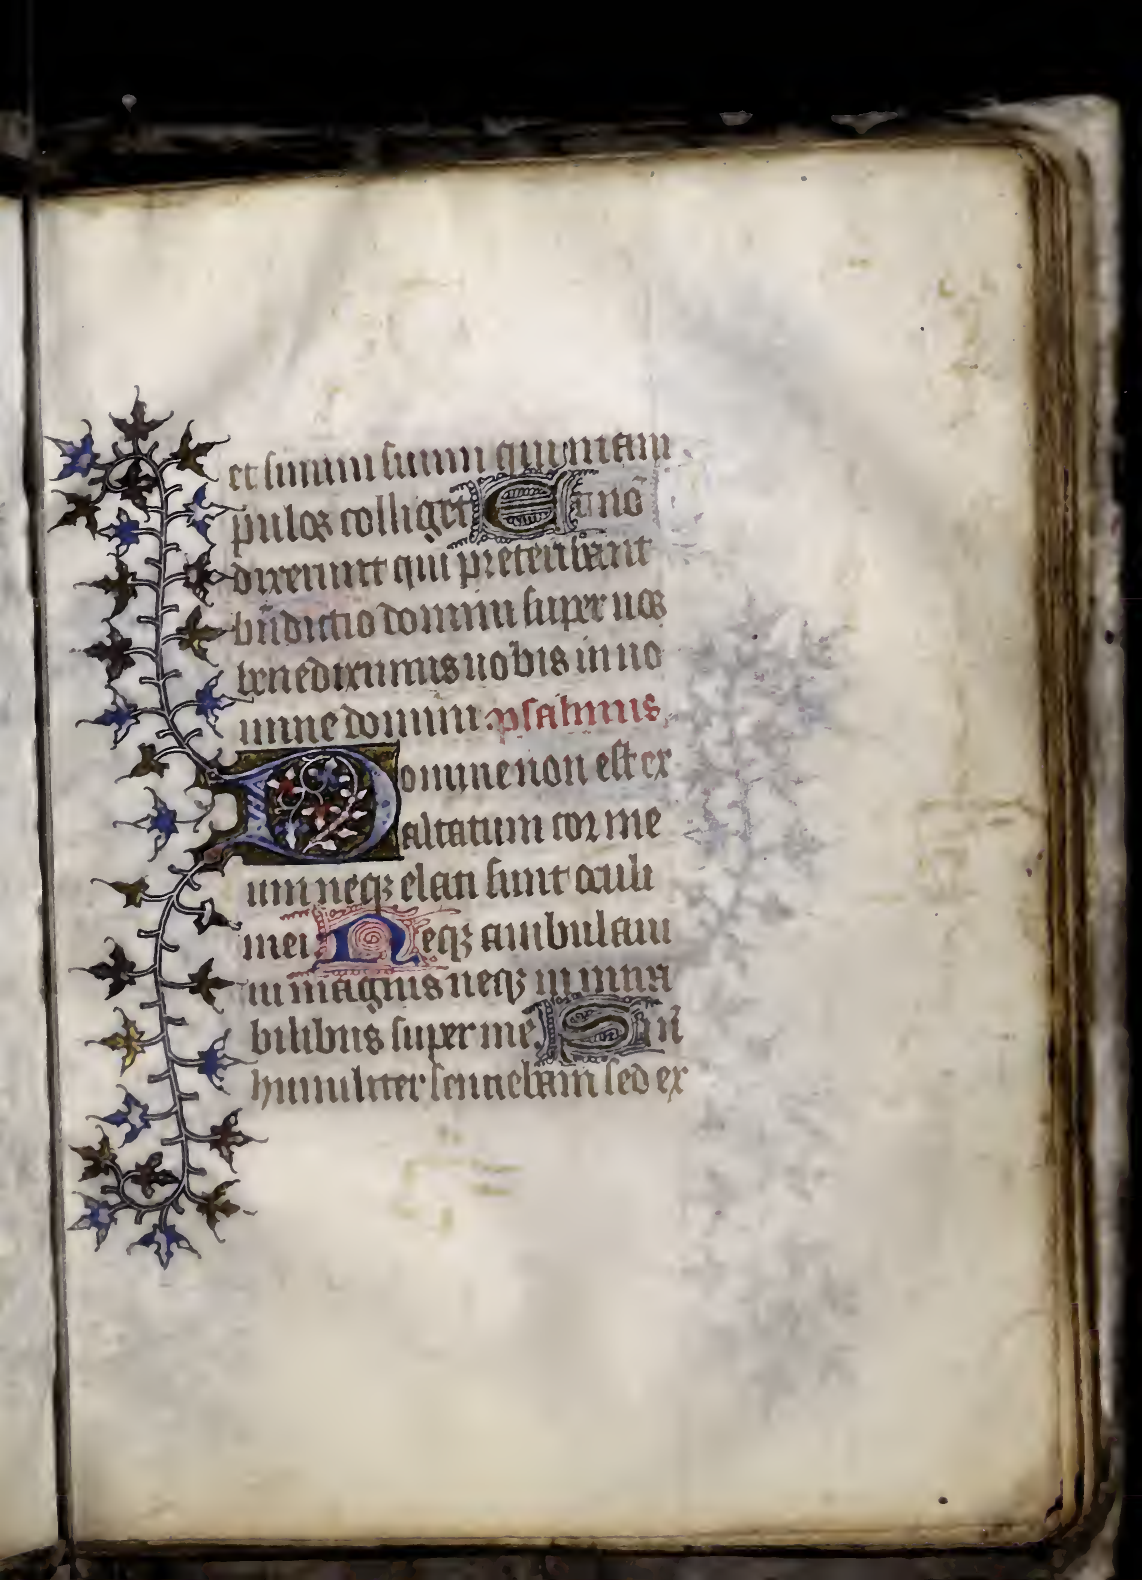 et sinum suum qui mani
pulos colliget Et nō
dixerunt qui preteribant
bn̄dictio domini super uos
benediximus uobis in no
mine domini psalmus
Domine non est ex
altatum cor me
um neqꝫ elati sunt oculi
mei Neqꝫ ambulaui
in magnis neqꝫ in mira
bilibus super me Si n̄
humiliter sentiebam sed ex